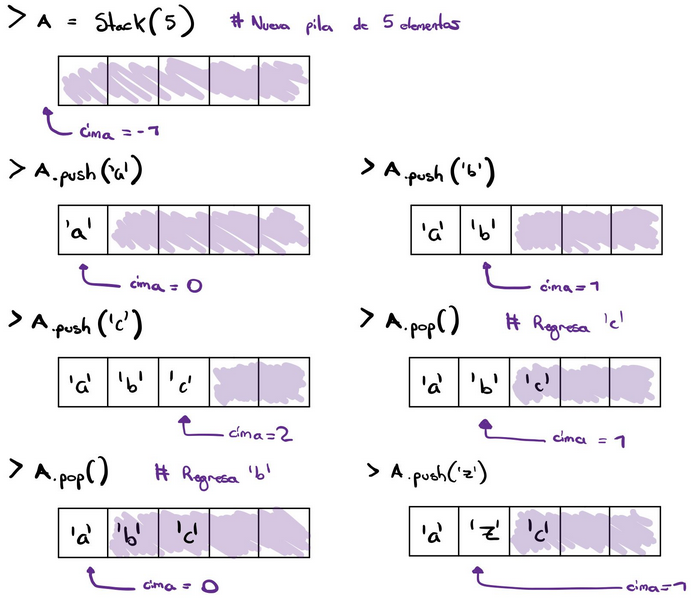 > A = Stack(5) # Nueva pila de 5 elementos
cima = -1
> A.push('a')
'a'
cima = 0
> A.push('b')
'a' 'b'
cima = 1
> A.push('c')
'a' 'b' 'c'
cima = 2
> A.pop() # Regresa 'c'
'a' 'b' 'c'
cima = 1
> A.pop() # Regresa 'b'
'a' 'b' 'c'
cima = 0
> A.push('z')
'a' 'z' 'c'
cima = 1